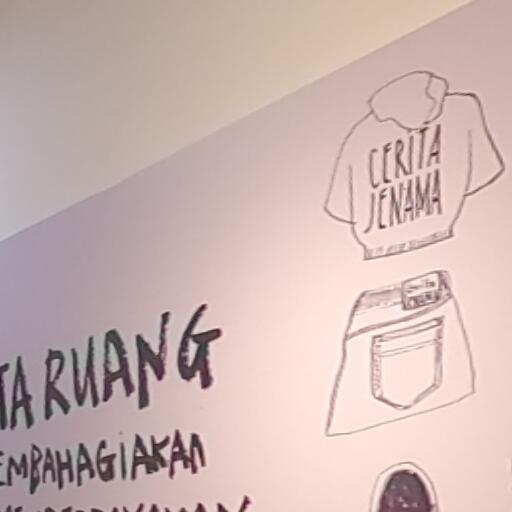 CERITA
JENAMA
TA RUANG
EMBAHAGIAKAN